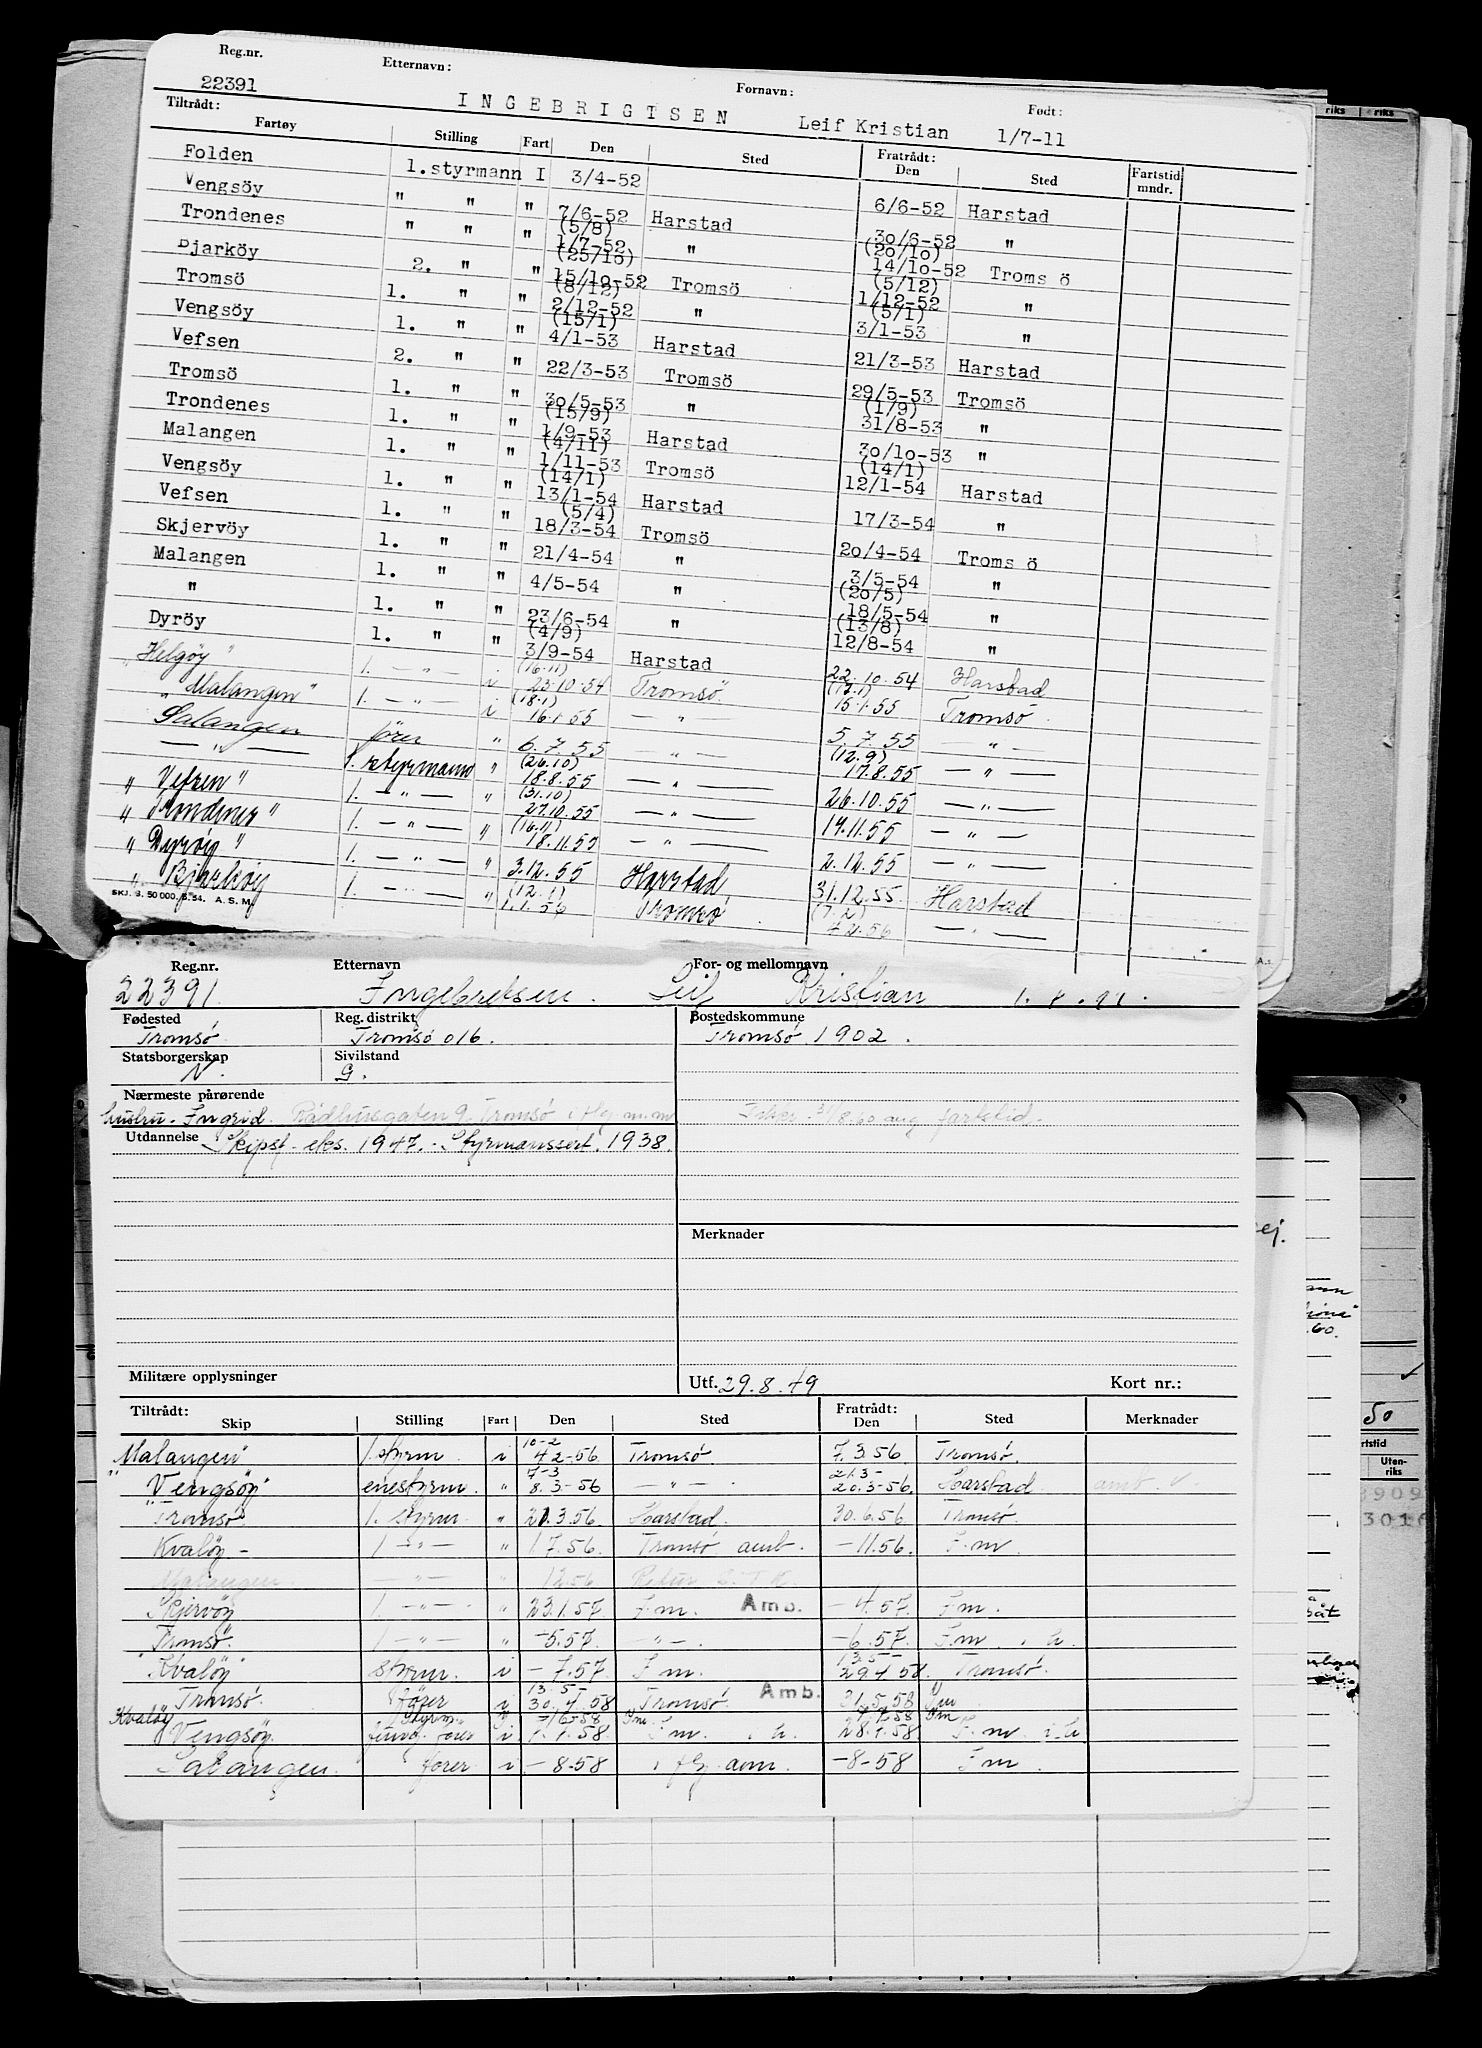 Reg.nr. Etternavn: Fornavn: Født:
22391 INGEBRIGTSEN Leif Kristian 1/7-11
Tiltrådt: Fratrådt:
Fartøy Stilling Fart Den Sted Den Sted Fartstid mndr.
Folden 1.styrmann I 3/4-52 6/6-52 Harstad
Vengsöy " " " 7/6-52 Harstad 30/6-52 "
Trondenes " " " (5/8) 1/7-52 " (20/10) 14/10-52 Troms ö
Bjarköy 2. " " (25/10) 15/10-52 Tromsö (5/12) 1/12-52 "
Tromsö 1. " " (8/12) 2/12-52 " (5/1) 3/1-53 "
Vengsöy 1. " " (15/1) 4/1-53 Harstad 21/3-53 Harstad
Vefsen 2. " " 22/3-53 Tromsö 29/5-53 Tromsö
Tromsö 1. " " 30/5-53 " (1/9) 31/8-53 "
Trondenes 1. " " (15/9) 1/9-53 Harstad 30/10-53 "
Malangen 1. " " (4/11) 1/11-53 Tromsö (14/1) 12/1-54 Harstad
Vengsöy 1. " " (14/1) 13/1-54 Harstad 17/3-54 "
Vefsen 1. " " (5/4) 18/3-54 Tromsö 20/4-54 Troms ö
Skjervöy 1. " " 21/4-54 " 3/5-54 "
Malangen 1. " " 4/5-54 " (20/5) 18/5-54 "
" 1. " " 23/6-54 " (13/8) 12/8-54 "
Dyröy 1. " " (4/9) 3/9-54 Harstad 22.10.54 Harstad
"Helgöy" 1. — " — i (16.11) 23.10.54 Tromsø (17.1) 15.1.55 Tromsø.
"Malangen" 1. — " — i (18.1) 16.1.55 — " — 5.7.55 — " —
Salangen fører " 6.7.55 — " — (12.9) 17.8.55 — " —
— " — 1. styrmann " (26.10) 18.8.55 — " — 26.10.55 — " —
"Vefsen" 1. — " — " (31.10) 27.10.55 — " — 17.11.55 — " —
"Trondenes" 1. — " — " (16.11) 18.11.55 — " — 2.12.55 — " —
"Dyröy" 1. — " — " 3.12.55 Harstad 31.12.55 Harstad
"Bjarköy 1. — " — " (12.1) 1.1.56 Tromsø (7.2) 4.2.56 — " —
SKJ. 3. 50 000. 5. 54. A.S.M.
Reg.nr. Etternavn For- og mellomnavn
22391. Ingebretsen. Leif Kristian
Fødested Reg. distrikt Bostedskommune
Tromsø Tromsø 016. Tromsø 1902.
Statsborgerskap Sivilstand
N. G.
Nærmeste pårørende
hustru. Ingrid. Rådhusgaten 9. Tromsø i flg. m.m
fartstid.
Utdannelse Skipsf. eks. 1947. Styrmannssert. 1938.
Merknader
Militære opplysninger Utf. 29.8.49 Kort nr.:
Tiltrådt: Fratrådt:
Skip Stilling Fart Den Sted Den Sted Merknader
Malangen" 1. styrm. i 10-2 4.2-56 Tromsø 7.3.56 Tromsø.
"Vengsøy" enestyrm. " 7-3 8.3-56 — " — 21.3- 20.3-56. Harstad amb.
"Tromsø" 1. styrm. " 21.3.56 Harstad. 30.6.56 Tromsø.
Kvaløy - 1 — " — " 1 7.56. Tromsø amb. - 11.56. F.m.
Malangen — " — " 12.56 Retur
Skjervøy 1. — " — " 23.1.57 F.m. Amb. - 4.57. F.m.
Tromsø. 1 — " — " -5.57. " -. -6.57. F.m.
"Kvaløy" styrm. i - 7.57. F.m. 13.5- 29.4 58. Tromsø.
Tromsø. fører i 13.5- 30.4.58 Tromsø. Amb. 31.5.58 Fm
Kvaløy styrm. -16-58 Fm Fm
Vengsøy. fører i 1.7.58. F.m. 28.7.58. F.m.
Salangen. fører i - 8-58 i flg. -8-58 F.m.